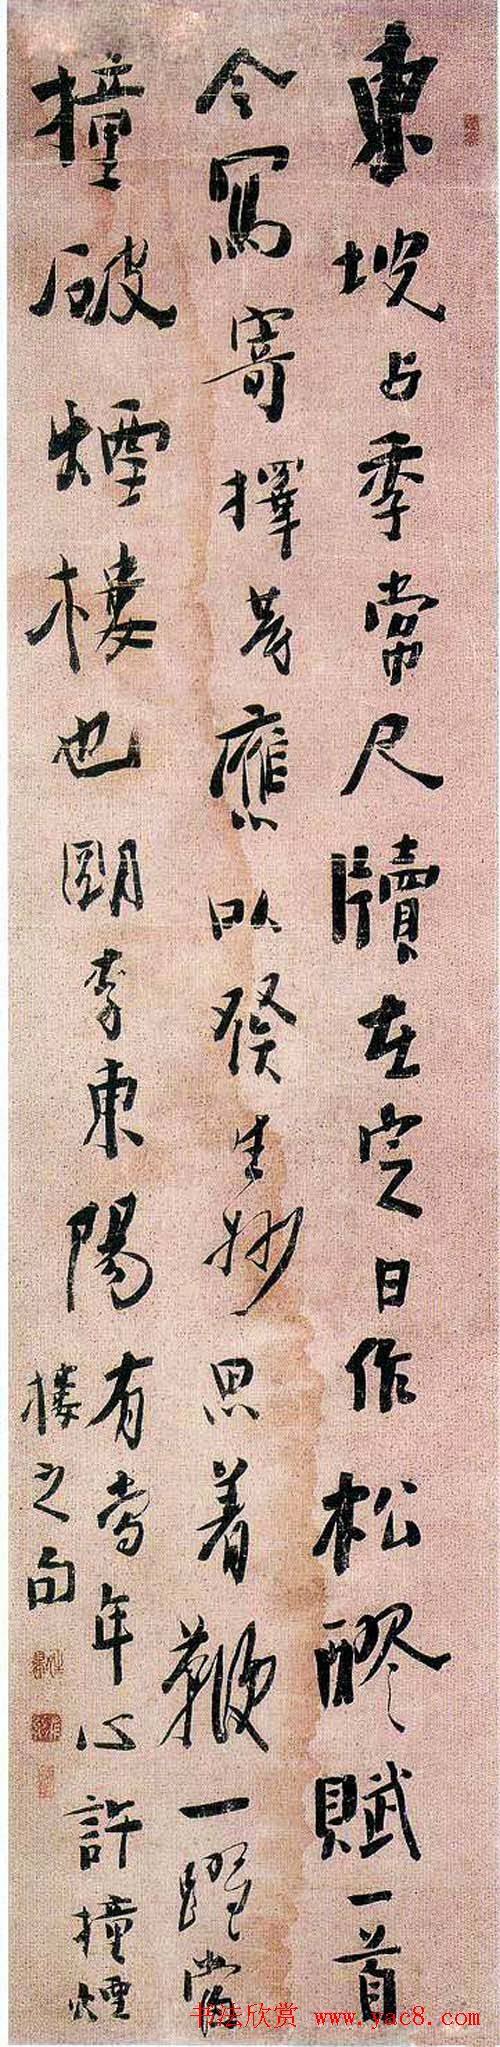 東坡与季常尺牘在定日作松醪賦一首
今寫寄擇等應以發生妙思着鞭一躍當
撞破煙樓也朙李東陽有當年心許撞煙
樓之句
书法欣赏 www.yac8.com